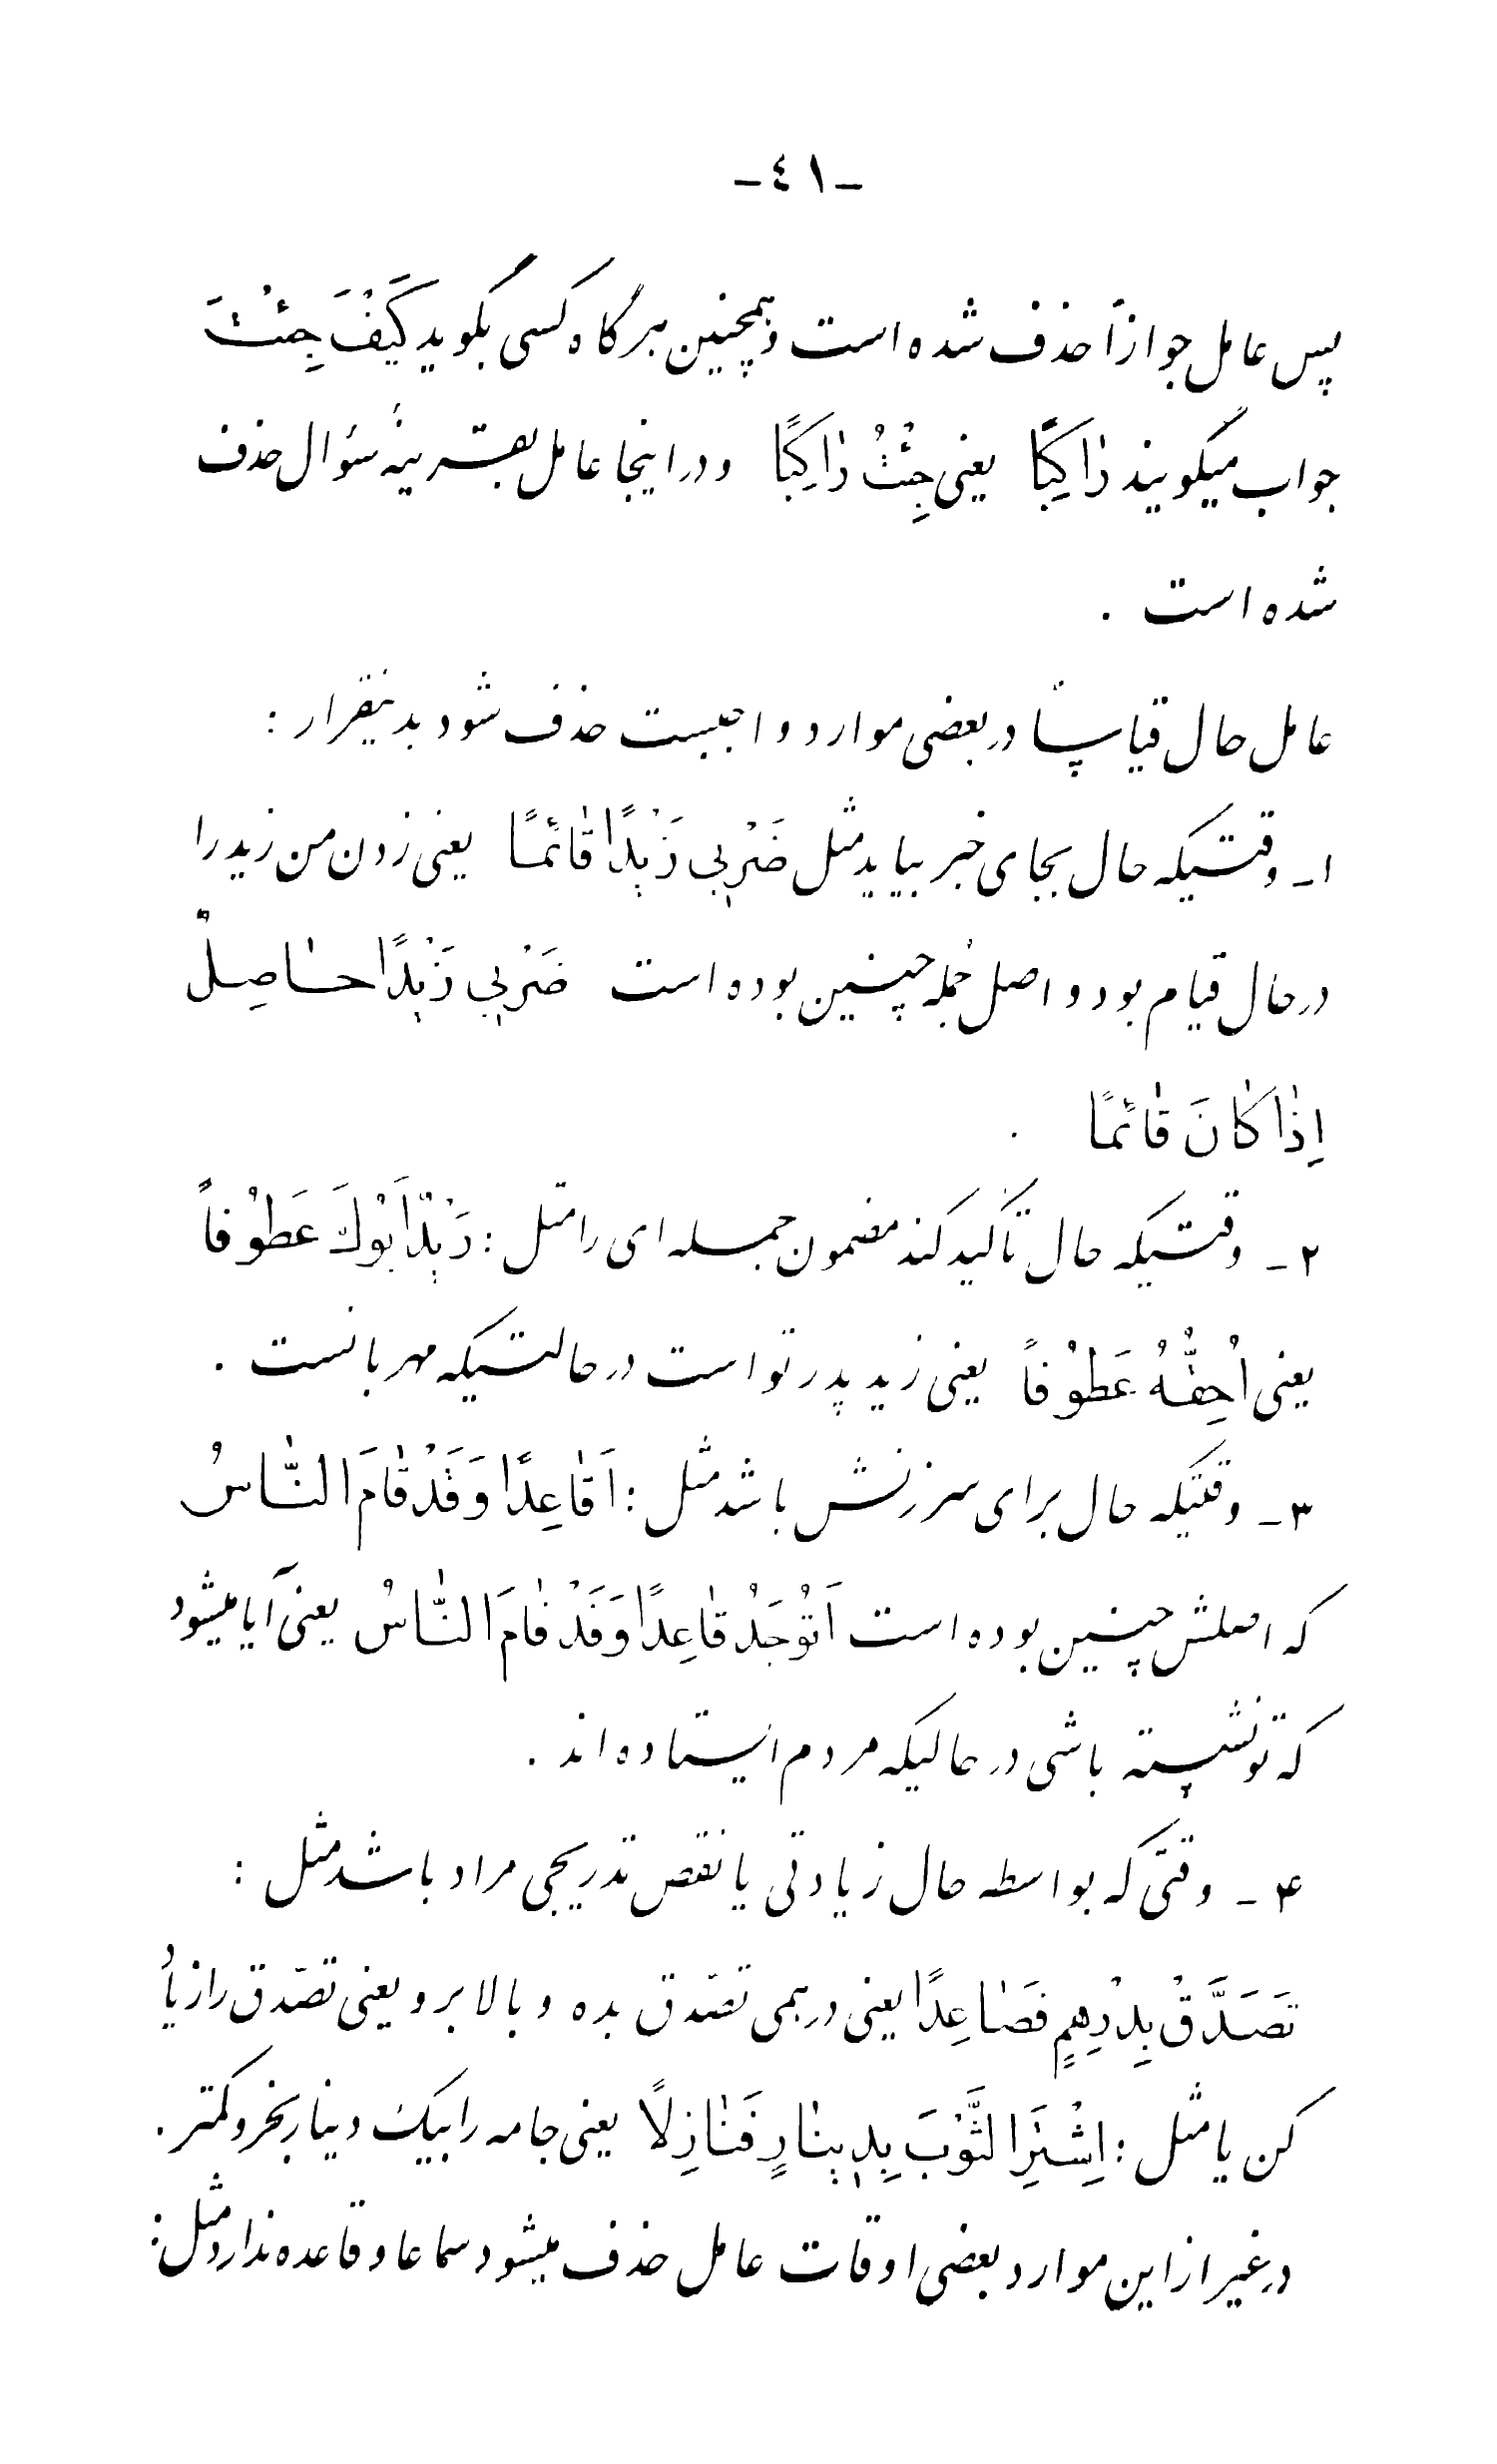 -٤١-
پس عامل جوازاً حذف شده است و همچنین هرگاه کسی بگوید کَیْفَ جِئْتَ
جواب میگویند رٰاکِبًا یعنی جِئْتُ رٰاکِبًا و در اینجا عامل بقرینهٔ سؤال حذف
شده است .
عامل حال قیاساً در بعضی موارد واجبست حذف شود بدینقرار :
۱- وقتیکه حال بجای خبر بیاید مثل ضَرْبي زَیْدًا قٰائمًا یعنی زدن من زید را
در حال قیام بود و اصل جمله چنین بوده است ضَرْبي زَیْدًا حٰاصِلٌ
اِذٰا کٰانَ قٰائمًا .
۲- وقتیکه حال تأکید کند مضمون جمله ای را مثل : زَیْدٌ اَبُوْكَ عَطُوْفاً
یعنی اُحِقُّهُ عَطُوْفاً یعنی زید پدر تو است در حالتیکه مهربانست .
۳- وقتیکه حال برای سرزنش باشد مثل : اَقٰاعِدًا وَ قَدْ قٰامَ النّٰاسُ
که اصلش چنین بوده است اَتُوْجَدُ قٰاعِدًا وَ قَدْ قٰامَ النّٰاسُ یعنی آیا میشود
که تو نشسته باشی در حالیکه مردم ایستاده اند .
۴- وقتی که بواسطه حال زیادتی یا نقص تدریجی مراد باشد مثل :
تَصَدَّقْ بِدْرِهِمٍ فَصٰاعِدًا یعنی درهمی تصّدق بده و بالا برو یعنی تصّدق را زیاد
کن یا مثل : اِشْتَرِ الثَّوْبَ بِدِینٰارٍ فَنٰازِلًا یعنی جامه را بیک دینار بخر و کمتر .
در غیر از این موارد بعضی اوقات عامل حذف میشود سماعا و قاعده ندارد مثل :